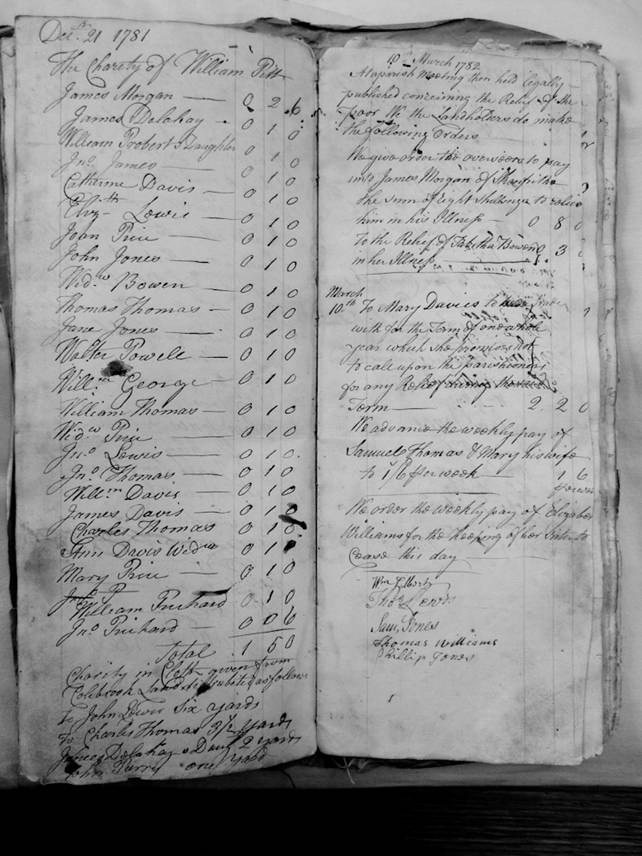 Decr. 21 1781
The Charity of William Pitt
James Morgan — 0 2 6
James Delahay - 0 1 0
William Probert & Daughter 0 1 0
Jno. James — 0 1 0
Catharine Davis — 0 1 0
Elizth Lewis — 0 1 0
Joan Price — 0 1 0
John Jones — 0 1 0
Widw. Bowen — 0 1 0
Thomas Thomas — 0 1 0
Jane Jones — 0 1 0
Walter Powell — 0 1 0
Willm George — 0 1 0
William Thomas — 0 1 0
Widw Price — 0 1 0
Jno Lewis — 0 1 0
Jno Thomas — 0 1 0
Willm Davis 0 1 0
James Davis — 0 1 0
Charles Thomas 0 1 0
Ann Davis Widw 0 1 0
Mary Price — 0 1 0
William Prichard 0 1 0
Jno Prichard — 0 0 6
Total 1 5 0
Charity in Cloth given from
Colebrook Land distributed as follows
to John Lewis Six yards
to Charles Thomas 3½ yards
James Delahay & Daur 2 yards
John Perry one yard
March 1782
At a parish Meeting then held legally
published concerning the Relief of the
poor We the Landholders do make
the following Orders
We give order the overseers to pay
unto James Morgan of
the Sum of eight Shillings to relieve
him in his Illness — 0 8 0
to the Relief of Tabitha Bowen 0 3 0
in her Illness
March
10th To Mary Davis to
with for the Term of one whole
year which she promises not
to call upon the parishioners
for any Relief during the said
Term — 2 2 0
We advance the weekly pay of
Samuel Thomas & Mary his wife
to 1/6 per week — 1 6
We order the weekly pay of
Williams for the keeping of her
Cease this day
Thos Lewis
Saml Jones
Thomas Williams
Phillip Jones